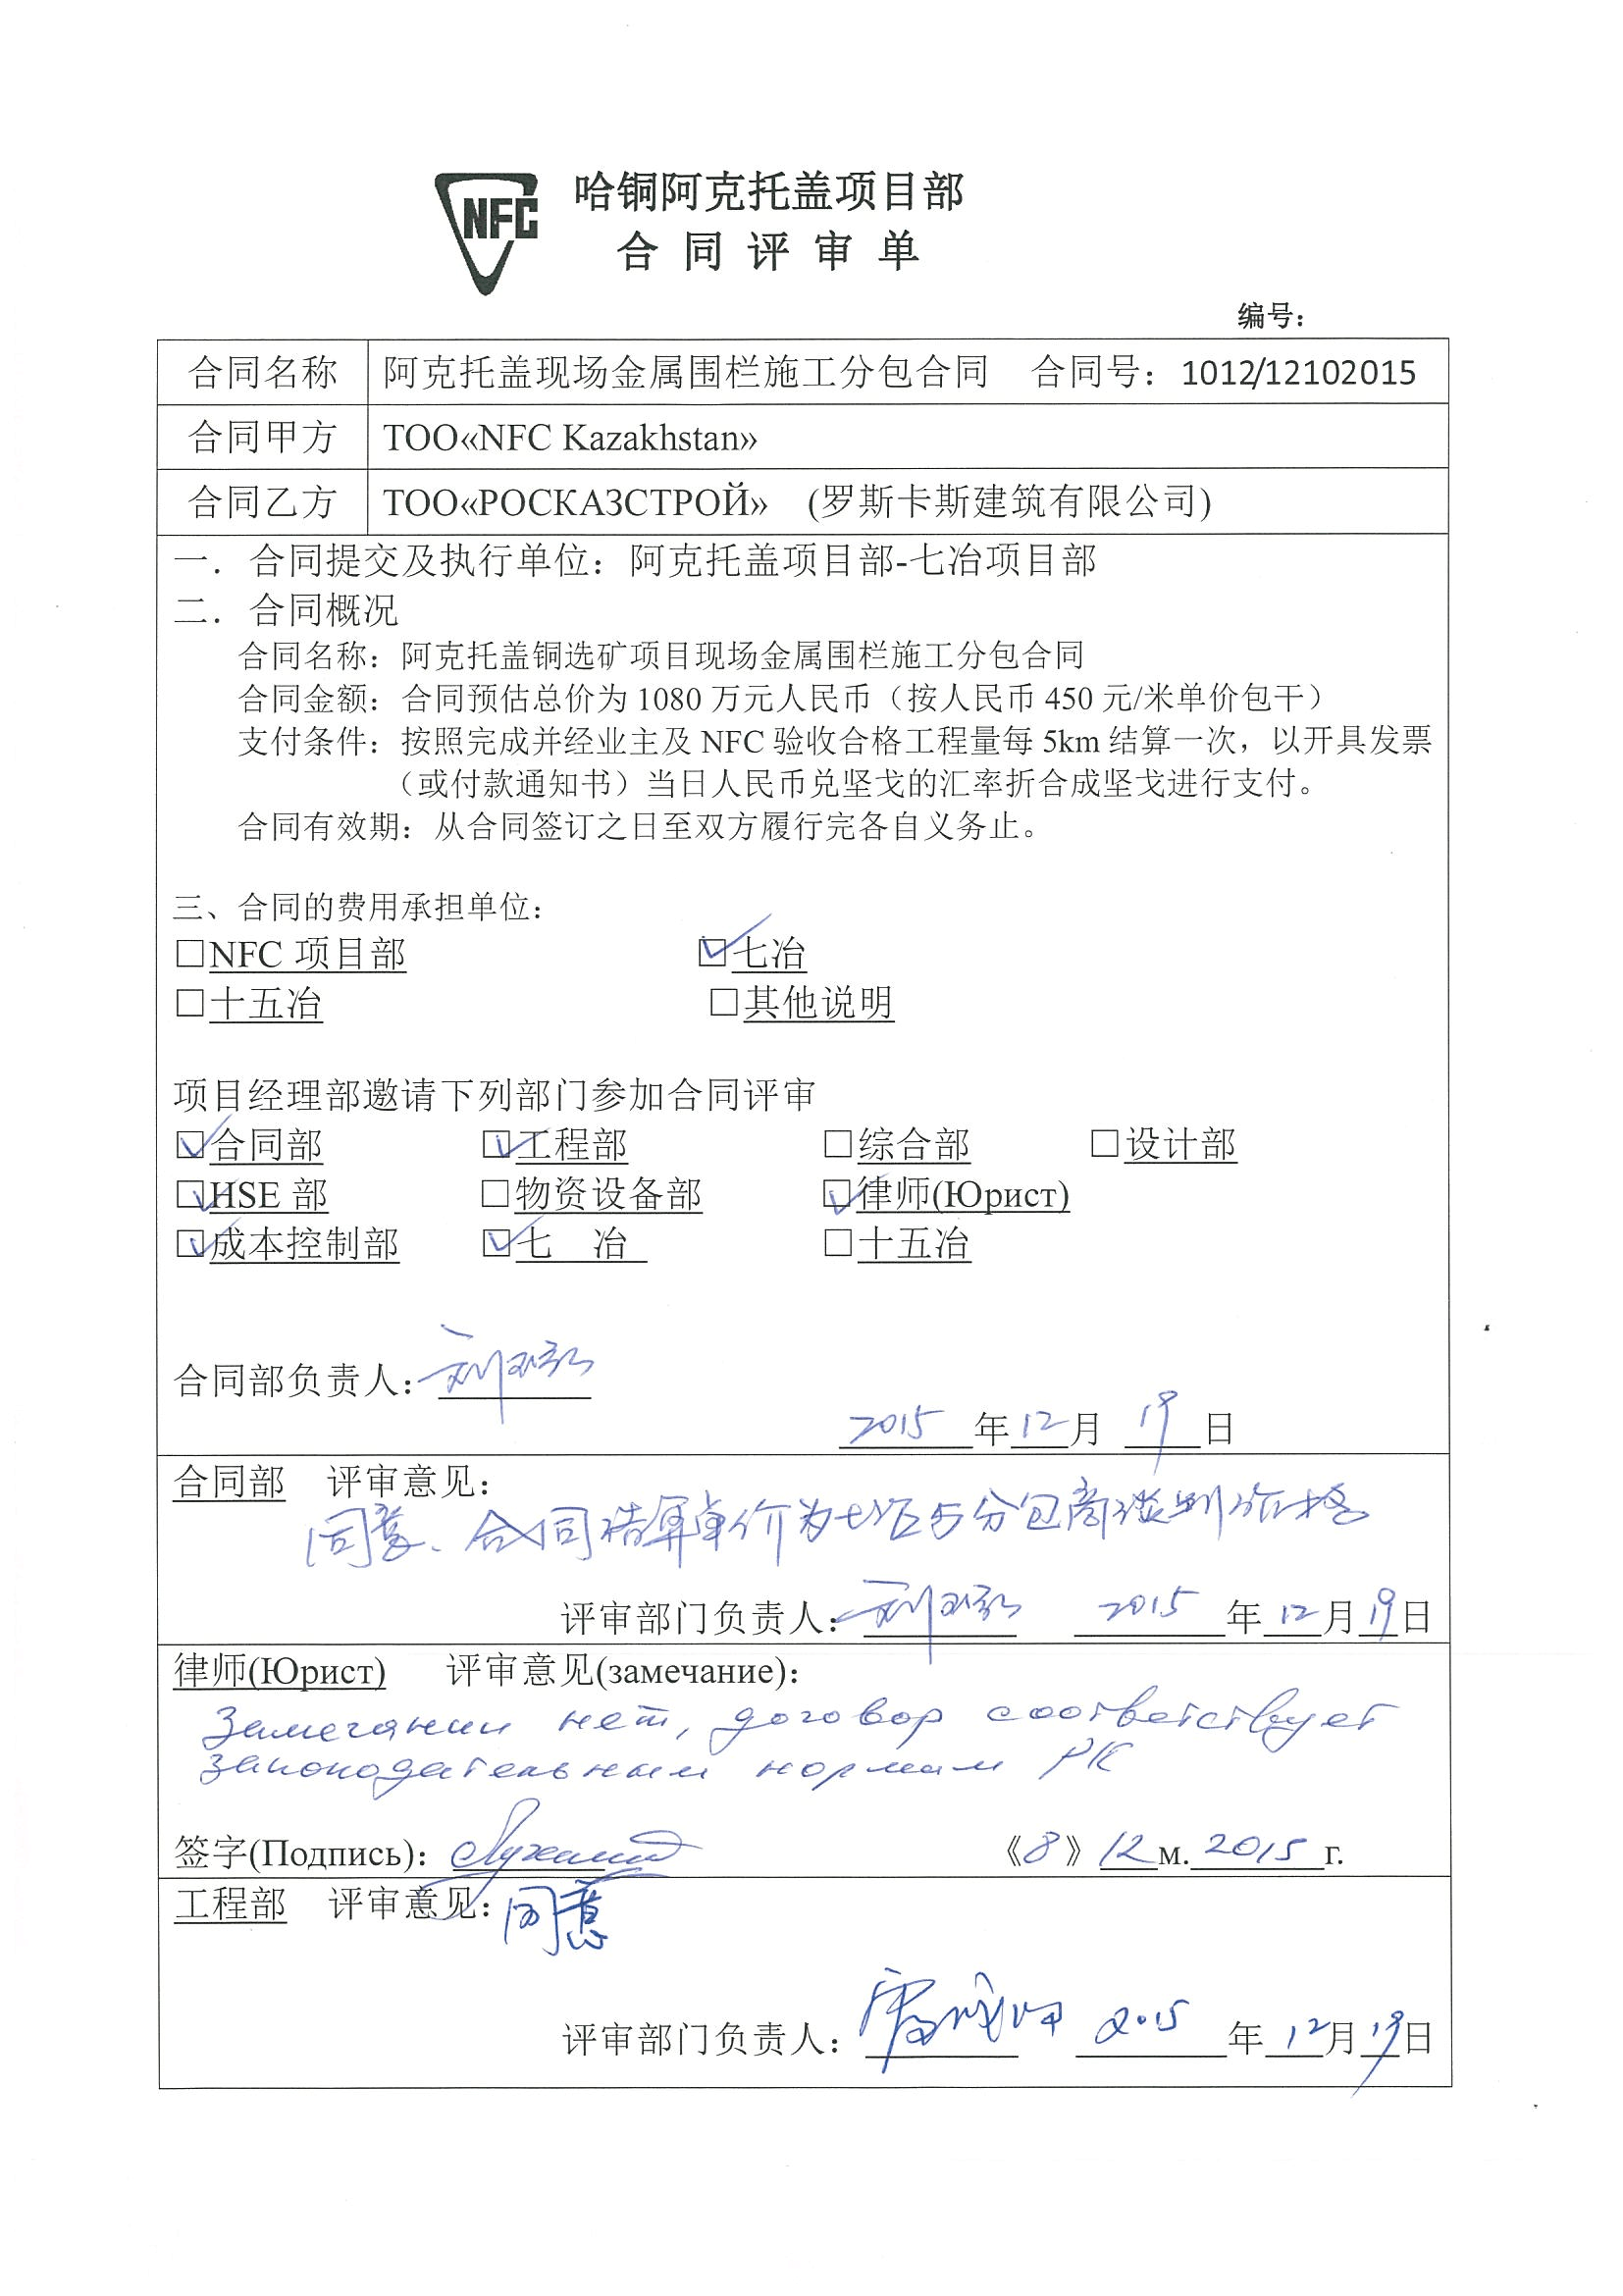 NFC
哈铜阿克托盖项目部
合同评审单
编号：
合同名称 阿克托盖现场金属围栏施工分包合同 合同号：1012/12102015
合同甲方 ТОО«NFC Kazakhstan»
合同乙方 ТОО«РОСКАЗСТРОЙ» (罗斯卡斯建筑有限公司)
一．合同提交及执行单位：阿克托盖项目部-七冶项目部
二．合同概况
合同名称：阿克托盖铜选矿项目现场金属围栏施工分包合同
合同金额：合同预估总价为1080万元人民币（按人民币450元/米单价包干）
支付条件：按照完成并经业主及NFC验收合格工程量每5km结算一次，以开具发票
（或付款通知书）当日人民币兑坚戈的汇率折合成坚戈进行支付。
合同有效期：从合同签订之日至双方履行完各自义务止。
三、合同的费用承担单位：
□NFC 项目部 ☑七冶
□十五冶 □其他说明
项目经理部邀请下列部门参加合同评审
☑合同部 ☑工程部 □综合部 □设计部
☑HSE 部 □物资设备部 ☑律师(Юрист)
☑成本控制部 ☑七 冶 □十五冶
合同部负责人：
2015 年 12 月 19 日
合同部 评审意见：
同意、合同结算单价为七冶与分包商谈判价格
评审部门负责人： 2015 年 12 月 19 日
律师(Юрист) 评审意见(замечание)：
Замечании нет, договор соответствует
законодательным нормам РК
签字(Подпись)： 《8》 12 м. 2015 г.
工程部 评审意见：同意
评审部门负责人： 2015 年 12 月 19 日